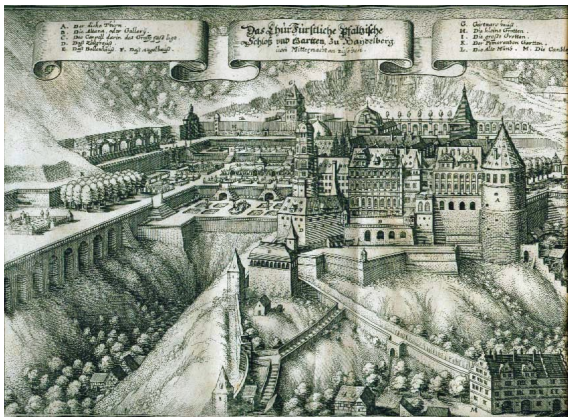 A. Der dicke Thurn
B. Die Altana, oder Gallerj
C. Das Capell darin das Grosse Fass ligt.
D. Dass Königreich
E. Dass Ballenhauss. F. Dass
Das Chür Fürstliche Pfältzische
Schloss vnd Gartten, Zu
von Mitternacht an
G. Gärtners hauss
H. Die kleine Grotten.
I. Die grosse Grotten.
K. Der Pomerantzen Gartten.
L. Die Alte Müntz. M. Die Cantzley
M